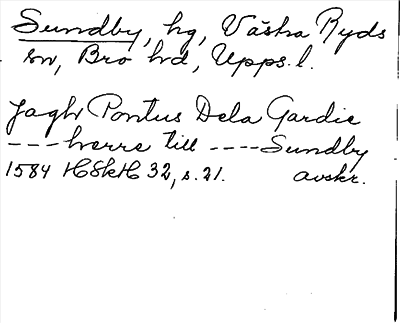 Sundby, hg, Västra Ryds
sn, Bro hd, Upps. l.
Jagh Pontus Dela Gardie
--- herre till ---- Sundby
1584 HSkH 32, s. 21. avskr.